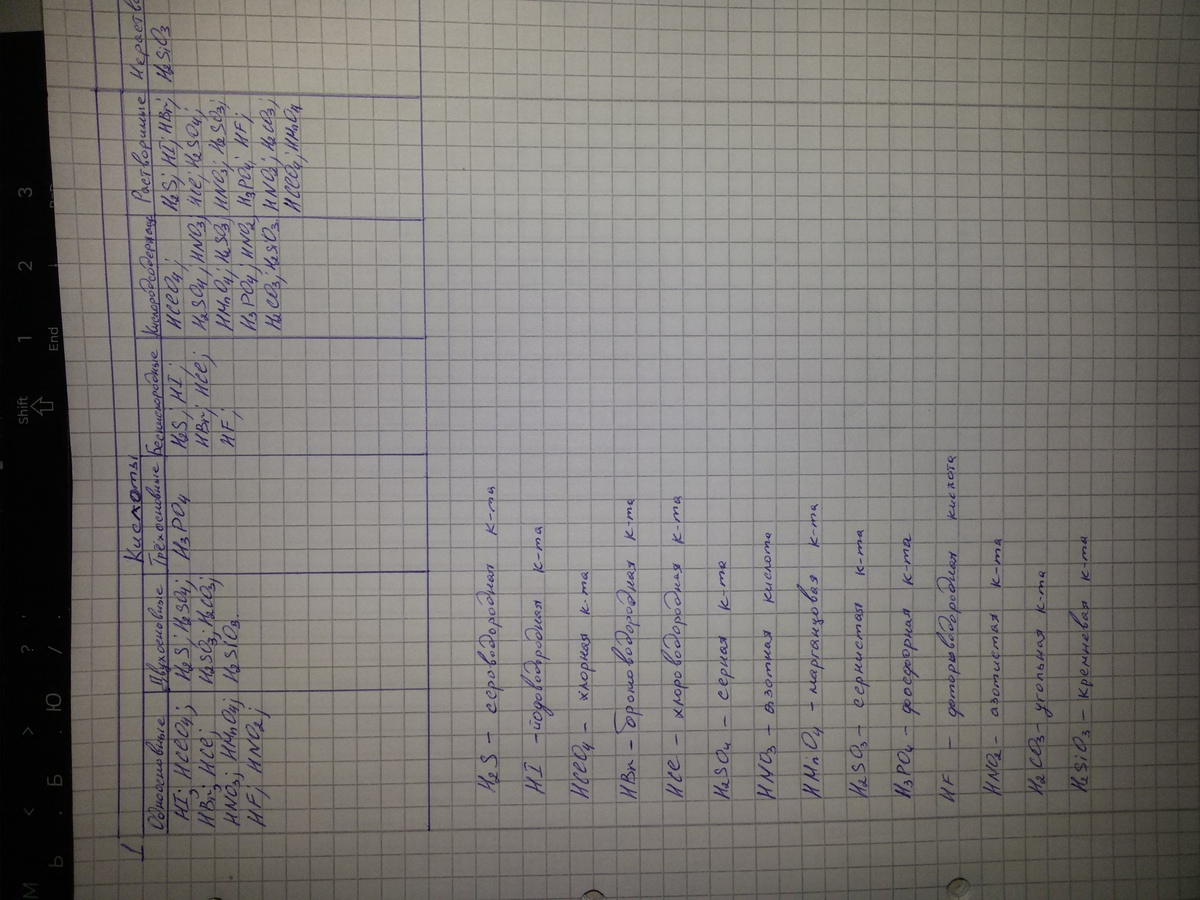 1 Кислоты
Одноосновные Двухосновные Трёхосновные Бескислородные Кислородсодержащ Растворимые Нераство
HI; HClO4; H2S; H2SO4; H3PO4 H2S; HI; HClO4; H2S; HI; HBr; H2SiO3
HBr; HCl; H2SO3; H2CO3; HBr; HCl; H2SO4; HNO3; HCl; H2SO4;
HNO3; HMnO4; H2SiO3. HF; HMnO4; H2SO3; HNO3; H2SO3;
HF; HNO2; H3PO4; HNO2 H3PO4; HF;
H2CO3; H2SiO3. HNO2; H2CO3;
HClO4; HMnO4
H2S – сероводородная к-та
HI – йодоводородная к-та
HClO4 – хлорная к-та
HBr – бромоводородная к-та
HCl – хлороводородная к-та
H2SO4 – серная к-та
HNO3 – азотная кислота
HMnO4 – марганцовая к-та
H2SO3 – сернистая к-та
H3PO4 – фосфорная к-та
HF – фтороводородная кислота
HNO2 – азотистая к-та
H2CO3 – угольная к-та
H2SiO3 – кремневая к-та
М < > ? :
Ь . Б . Ю / .
Shift
End
1 2 3